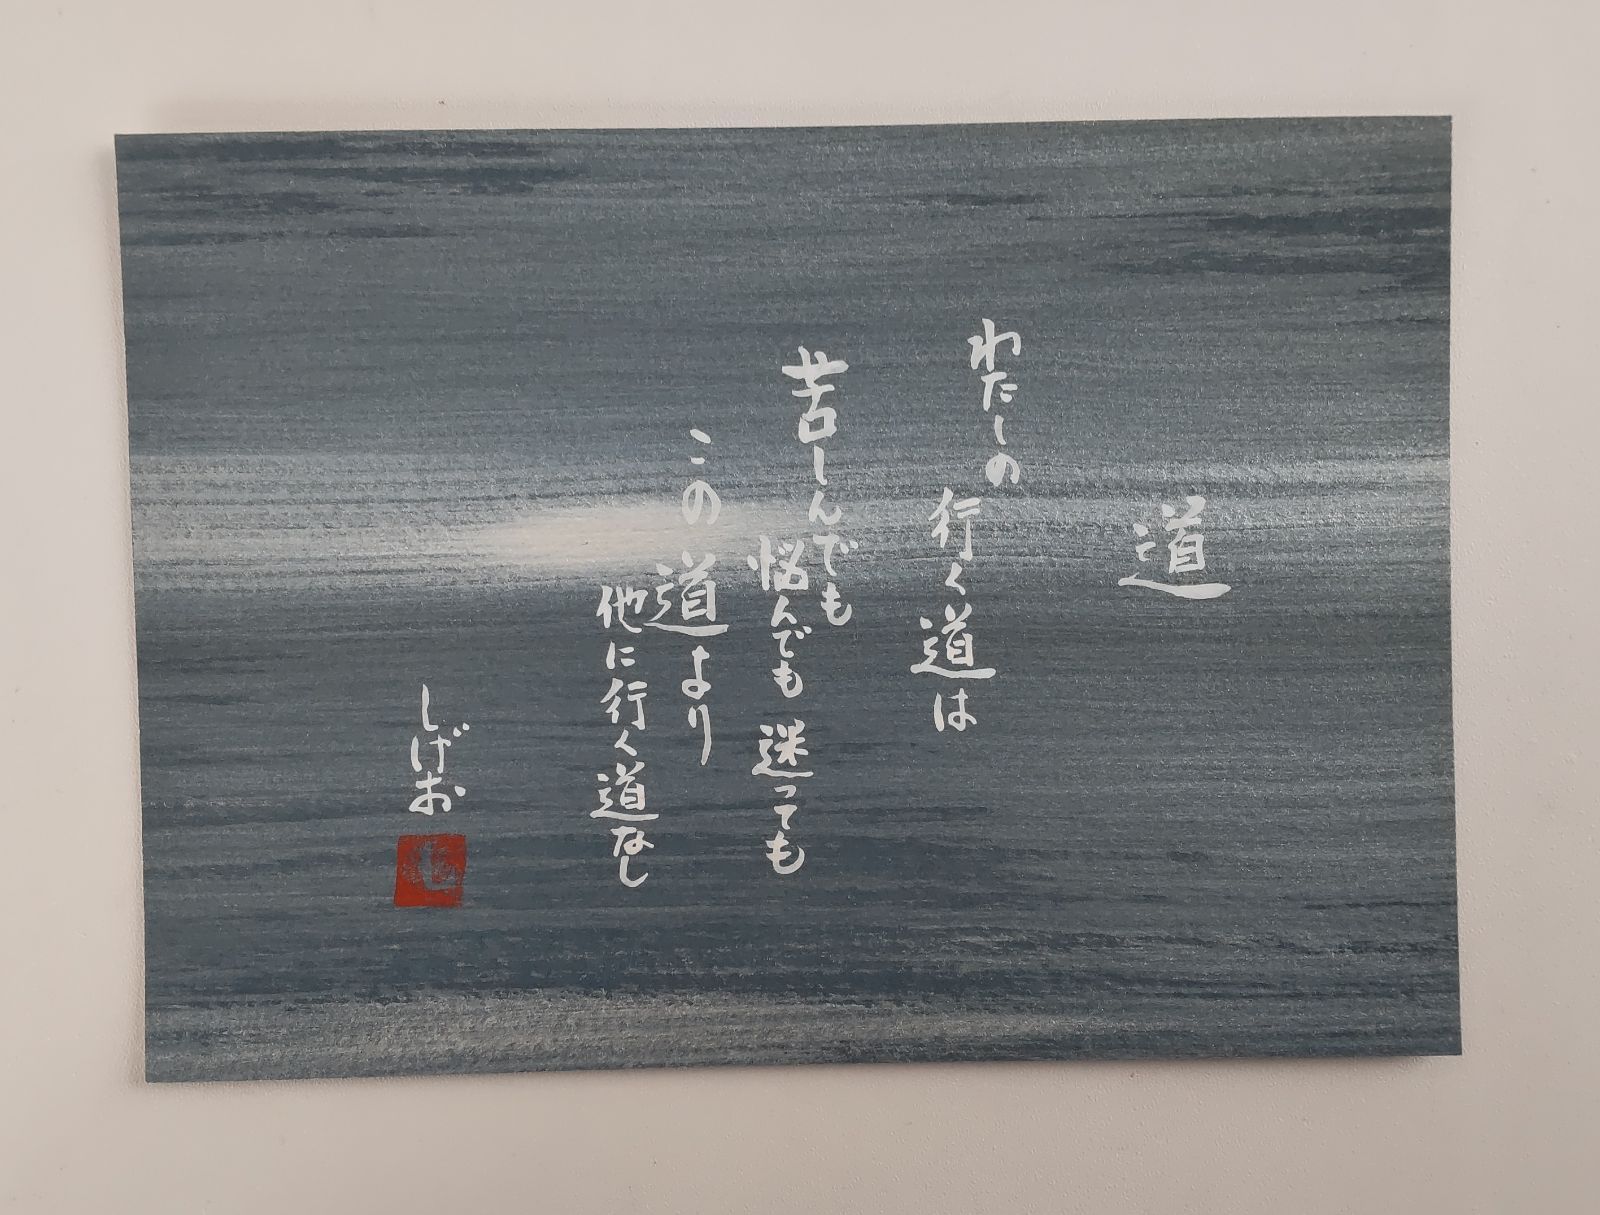 道
わたしの
行く道は
苦しんでも
悩んでも 迷っても
この道より
他に行く道なし
しげお